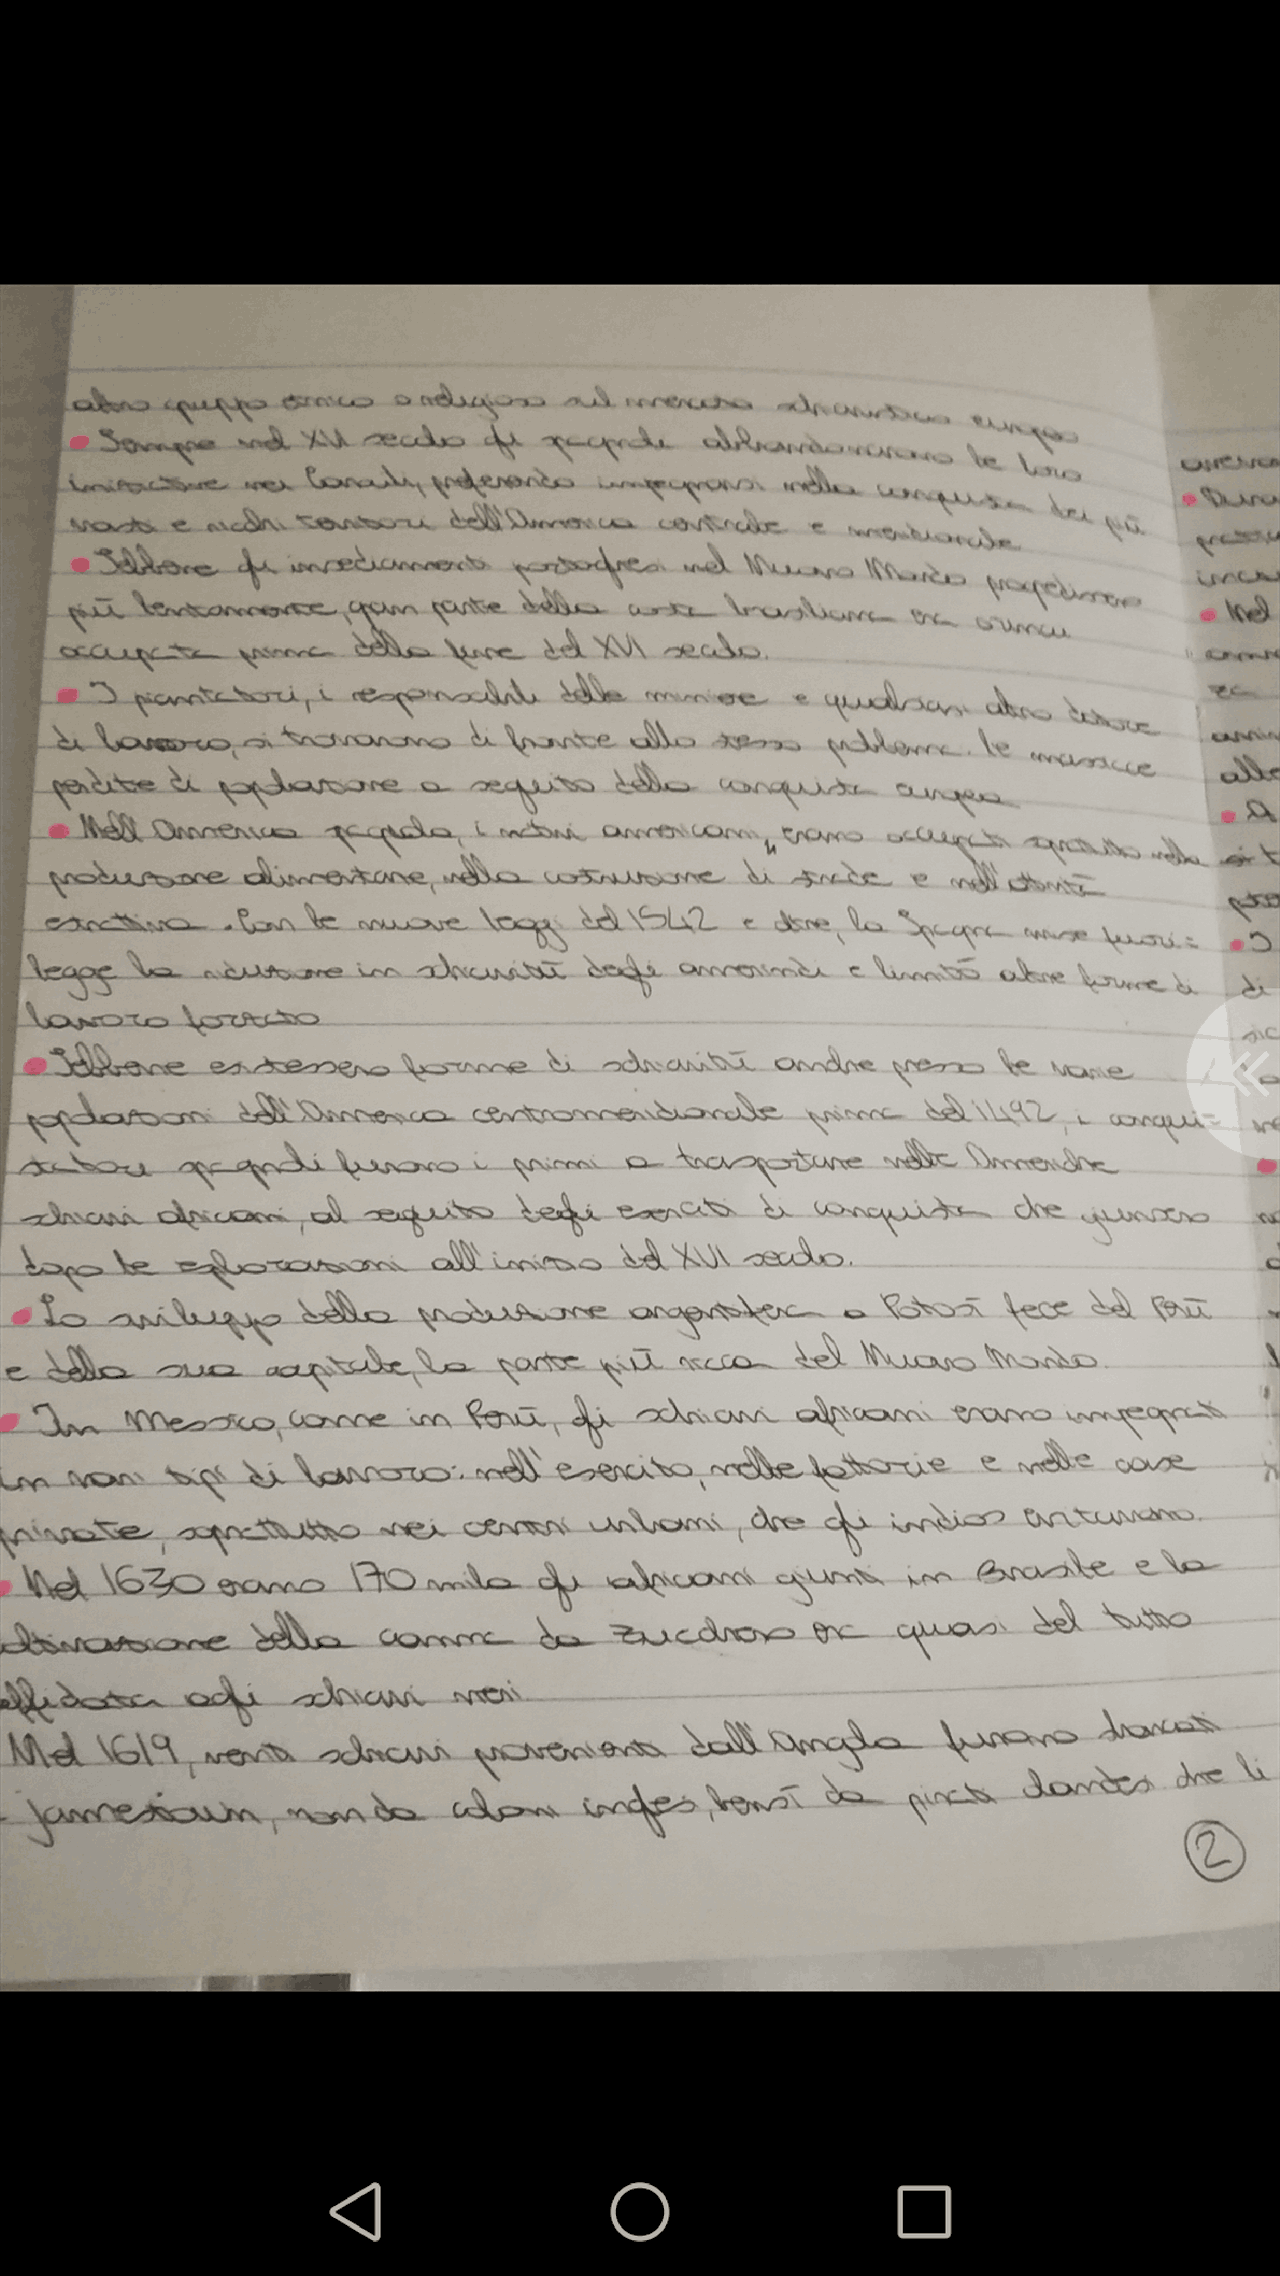 altro gruppo etnico o religioso sul mercato schiavistico europeo
• Sempre nel XVI secolo gli spagnoli abbandonarono le loro
iniziative nei Canarie, preferendo impegnarsi nella conquista dei più
vasti e ricchi territori dell'America centrale e meridionale
• Sebbene gli insediamenti portoghesi nel Nuovo Mondo progredissero
più lentamente, gran parte della costa brasiliana era ormai
occupata prima della fine del XVI secolo.
• I piantatori, i responsabili delle miniere e qualsiasi altro datore
di lavoro, si trovarono di fronte allo stesso problema. le massicce
perdite di popolazione a seguito della conquista europea
• Nell'America spagnola, i nativi americani, erano occupati soprattutto nella
produzione alimentare, nella costruzione di strade e nell'attività
estrattiva. Con le nuove leggi del 1542 e oltre, la Spagna mise fuori=
legge la riduzione in schiavitù degli amerindi e limitò altre forme di
lavoro forzato
• Sebbene esistessero forme di schiavitù anche presso le varie
popolazioni dell'America centromeridionale prima del 1492, i conqui=
statori spagnoli furono i primi a trasportare nelle Americhe
schiavi africani, al seguito degli eserciti di conquista che giunsero
dopo le esplorazioni all'inizio del XVI secolo.
• Lo sviluppo della produzione argentifera a Potosì fece del Perù
e della sua capitale, la parte più ricca del Nuovo Mondo.
• In Messico, come in Perù, gli schiavi africani erano impegnati
in vari tipi di lavoro: nell'esercito, nelle fattorie e nelle case
private, soprattutto nei centri urbani, che gli indios evitavano.
• Nel 1630 erano 170 mila gli africani giunti in Brasile e la
coltivazione della canna da zucchero era quasi del tutto
affidata agli schiavi neri
Nel 1619, venti schiavi provenienti dall'Angola furono sbarcati
Jamestown, non da coloni inglesi, bensì da pirati olandesi che li
2